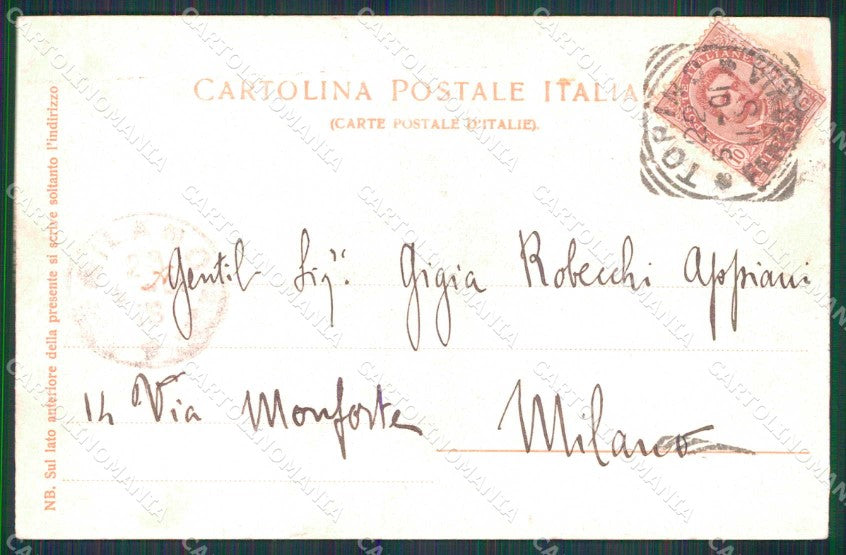 CARTOLINA POSTALE ITALIA
(CARTE POSTALE D'ITALIE).
NB. Sul lato anteriore della presente si scrive soltanto l'indirizzo
Gentil Sigʳᵃ. Gigia Robecchi Appiani
14 Via Monforte
Milano
CARTOLINOMANIA